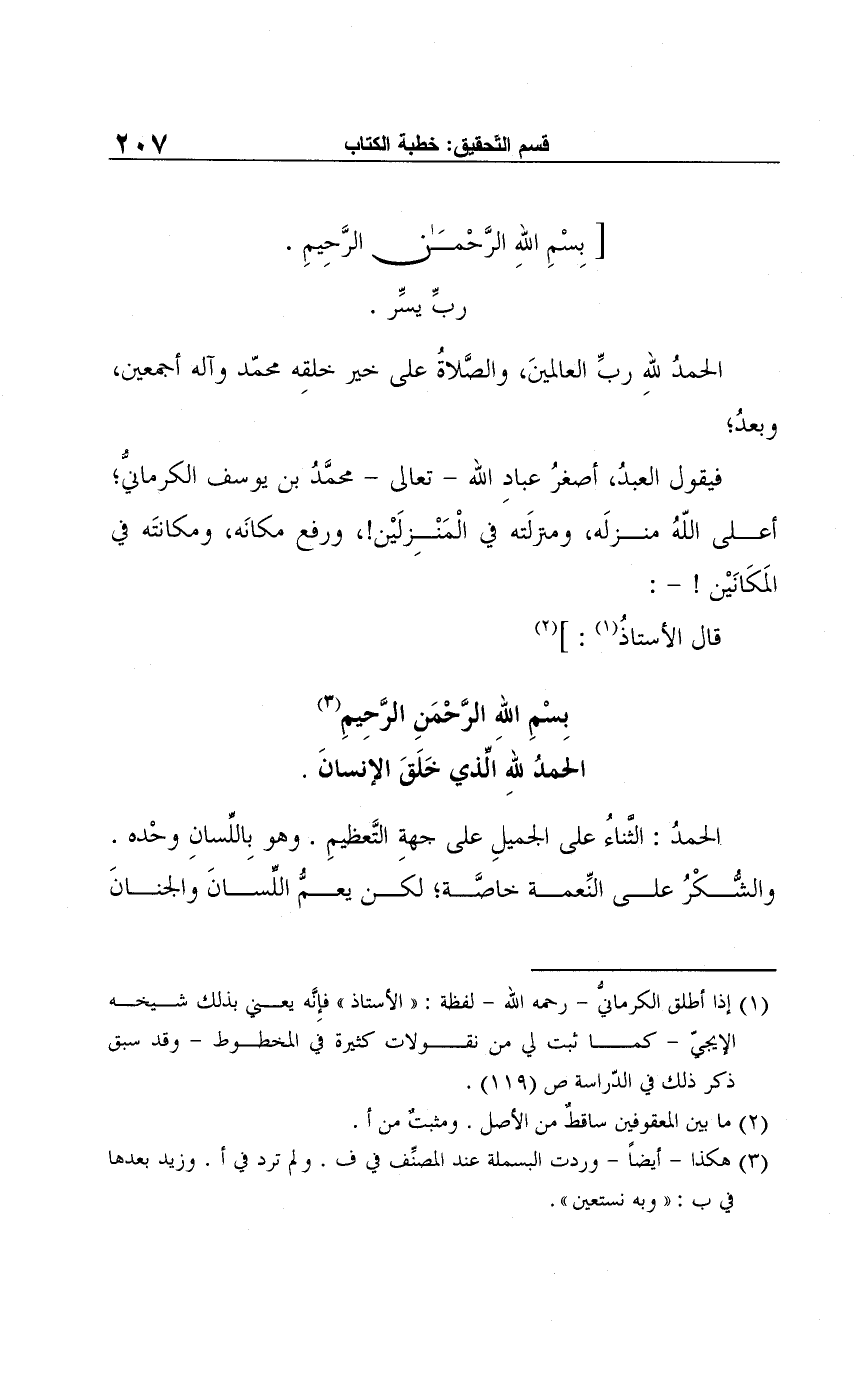 قسم التَّحقيق: خطبة الكتاب ٢٠٧
[ بِسْمِ اللهِ الرَّحْمَـٰنِ الرَّحِيمِ .
ربِّ يسِّر .
الحمدُ للهِ ربِّ العالمينَ، والصَّلاةُ على خير خلقِه محمّد وآله أجمعين،
وبعدُ؛
فيقول العبدُ، أصغرُ عبادِ الله - تعالى - محمَّدُ بن يوسف الكرمانيُّ؛
أعـلى اللهُ منـزلَه، ومنزلَته في الْمَنْـزِلَيْن!، ورفع مكانَه، ومكانتَه في
المَكَانَيْن ! - :
قال الأستاذُ(١) : ](٢)
بِسْمِ اللهِ الرَّحْمَنِ الرَّحِيمِ(٣)
الحمدُ للهِ الَّذي خَلَقَ الإنسانَ .
الحمدُ : الثَّناءُ على الجميلِ على جهةِ التَّعظيمِ . وهو بِاللِّسانِ وحْده .
والشُّـكْرُ علـى النِّعمـة خاصَّـة؛ لكـن يعـمُّ اللِّسـانَ والجنـانَ
(١) إذا أطلق الكرمانيُّ - رحمه الله - لفظة : « الأستاذ » فإنَّه يعـني بذلك شـيخـه
الإيجيّ - كمـا ثبت لي من نقـولات كثيرة في المخطـوط - وقد سبق
ذكر ذلك في الدّراسة ص (١١٩) .
(٢) ما بين المعقوفين ساقطٌ من الأصل . ومثبتٌ من أ .
(٣) هكذا - أيضاً - وردت البسملة عند المصنِّف في ف . ولم ترد في أ . وزيد بعدها
في ب : « وبه نستعين ».